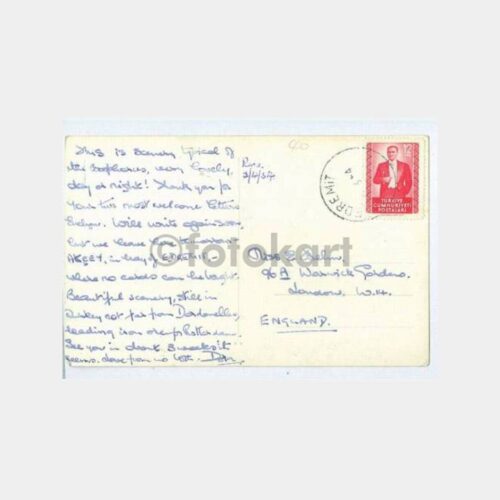 This is Scenery typical of
the Bosphorus, very lovely,
day or night! Thank you for
your two most welcome letters
Evelyn. Will write again soon,
but we leave tomorrow
AKÇAY, in bay of EDREMIT
where no cards can be bought.
Beautiful scenery, still in
Turkey not far from Dardanelles,
loading iron ore for Rotterdam.
See you in about 3 weeks it
seems. Love from us both.
3/4/54
Miss E.
96A Warwick Gardens.
London. W.14.
ENGLAND.
EDREMİT
12
TÜRKİYE
CUMHURİYETİ
POSTALARI
©fotokart